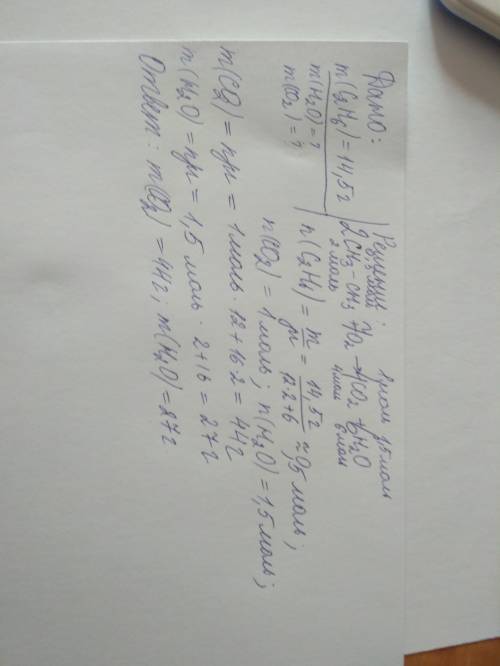 Дано:
m(C2H6) = 14,5г
m(H2O) = ?
m(CO2) = ?
Решение:
1моль 1,5моль
2CH3-CH3 + 7O2 → 4CO2 + 6H2O
2моль 4моль 6моль
n(C2H6) = m/M = 14,5г/12·2+6 ≈ 0,5 моль;
n(CO2) = 1 моль; n(H2O) = 1,5 моль;
m(CO2) = n·M = 1 моль · 12+16·2 = 44г
m(H2O) = n·M = 1,5 моль · 2+16 = 27г
Ответ: m(CO2) = 44г; m(H2O) = 27г